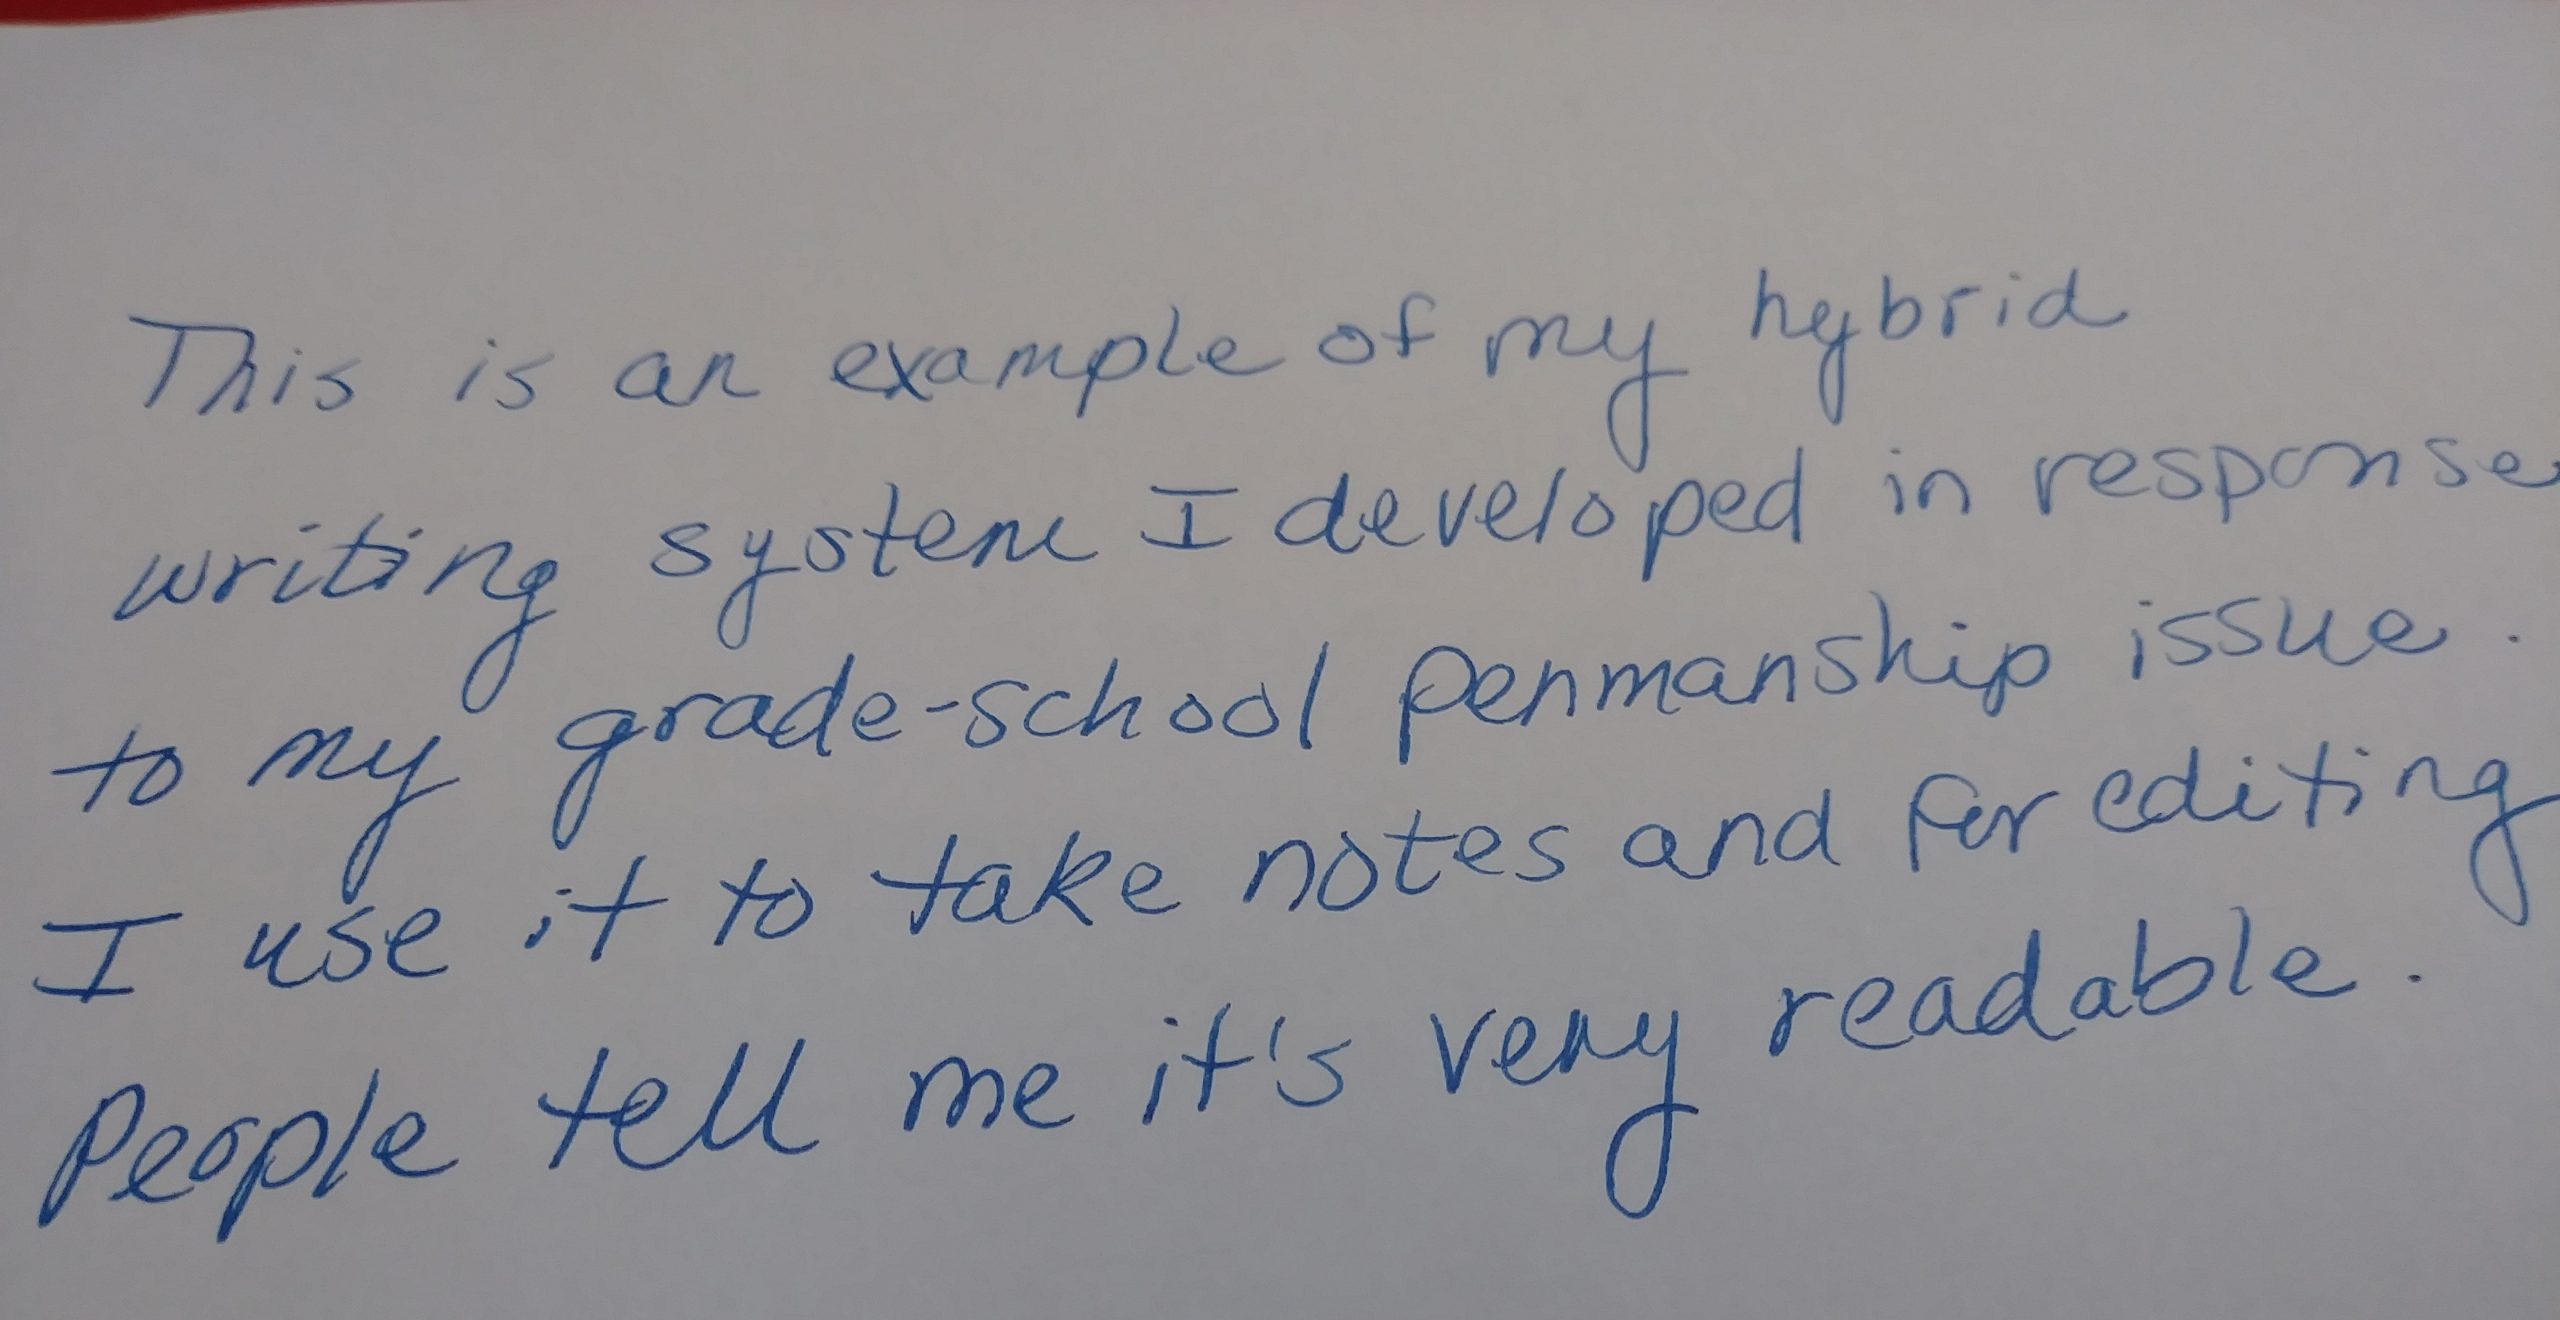 This is an example of my hybrid
writing system I developed in response
to my grade-school penmanship issue.
I use it to take notes and for editing
People tell me it's very readable.